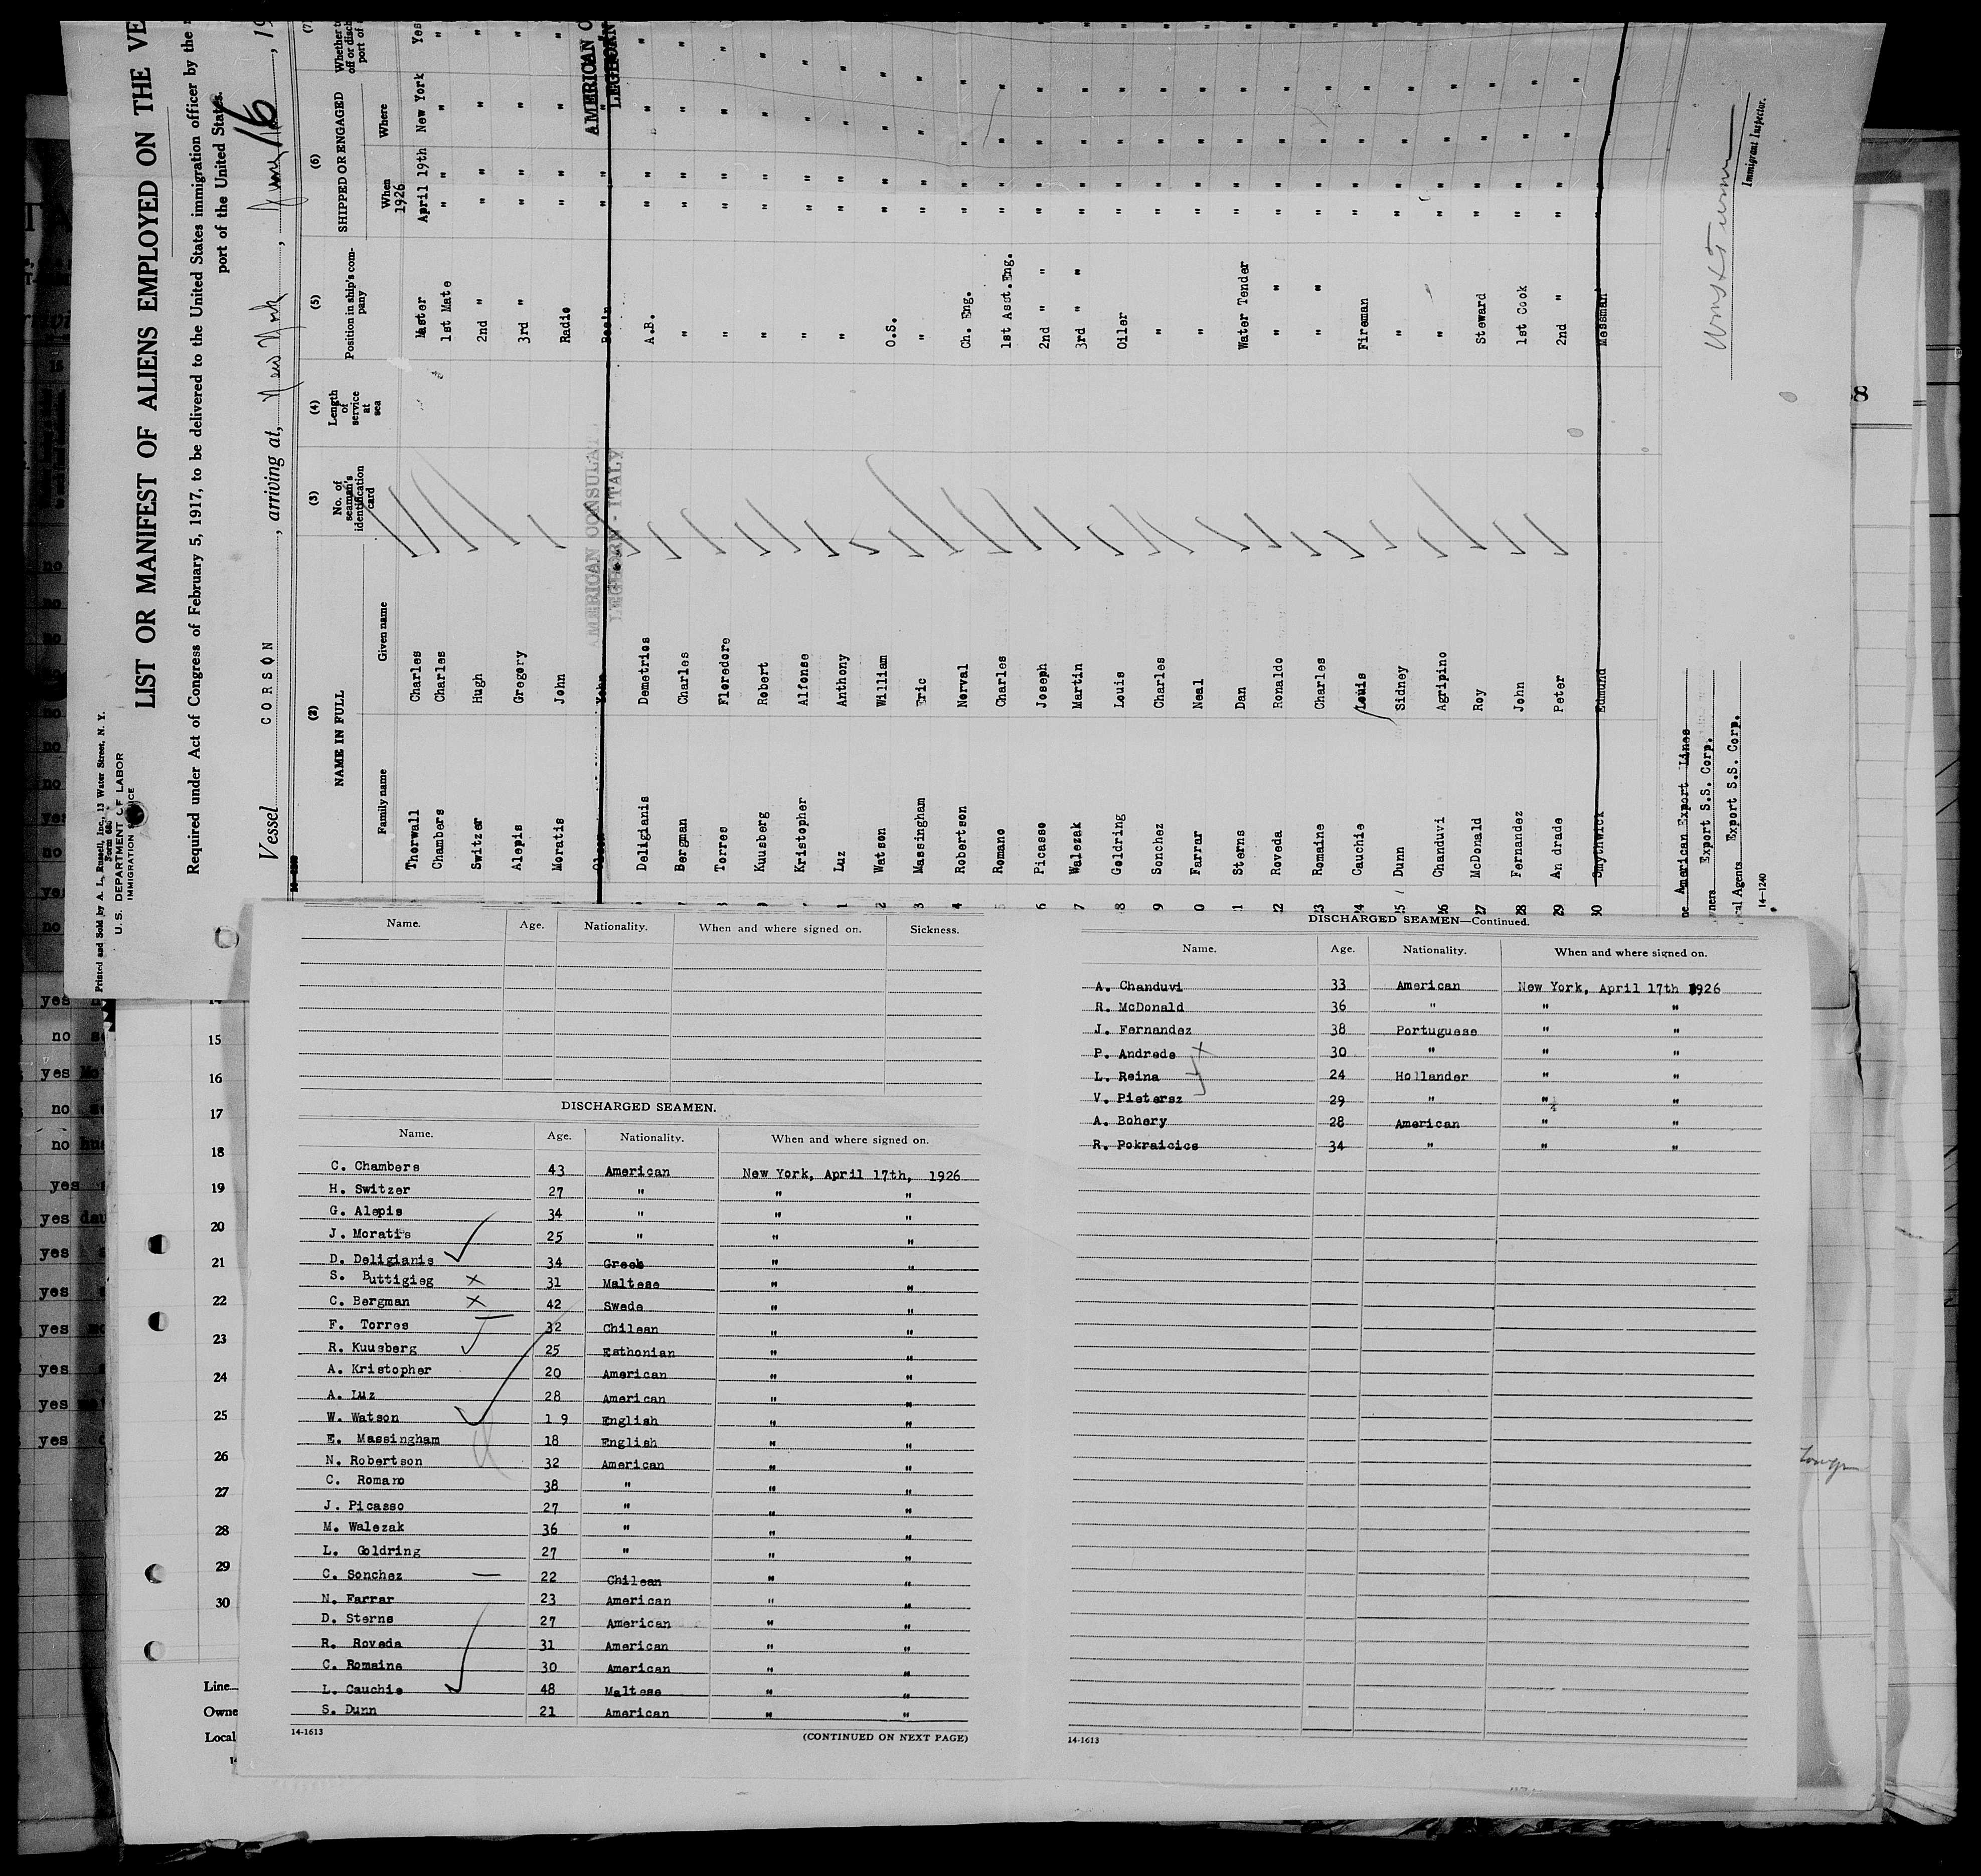 Printed and Sold by A. L. Russell, Inc., 13 Water Street, N. Y.
Form 680
U. S. DEPARTMENT OF LABOR
IMMIGRATION
LIST OR MANIFEST OF ALIENS EMPLOYED ON THE VE
Required under Act of Congress of February 5, 1917, to be delivered to the United States immigration officer by the
port of the United States.
16
Vessel CORSON, arriving at, New York, June 16, 19
(2) (3) (4) (5) (6) (7)
NAME IN FULL No. of seaman's identification card Length of service at sea Position in ship's company SHIPPED OR ENGAGED
Family name Given name When Where
1926
Thorwall Charles Master April 19th New York Yes
Chambers Charles 1st Mate " " "
Switzer Hugh 2nd " " " "
Alepis Gregory 3rd " " " "
Moratis John Radio " " "
Olsen John Bos'n " "
AMERICAN CONSULAT
LEGHORN - ITALY
AMERICAN C
LEGHORN
Deligianis Demetrios A.B. " " "
Bergman Charles " " " "
Torres Floredore " " " "
Kuusberg Robert " " " "
Kristopher Alfonse " " " "
1 Luz Anthony " " " "
2 Watson William O.S. " " "
3 Massingham Eric " " " "
4 Robertson Norval Ch. Eng. " " "
5 Romano Charles 1st Asst.Eng. " " "
6 Picasso Joseph 2nd " " " " "
7 Walezak Martin 3rd " " " " "
8 Goldring Louis Oiler " " "
9 Sonchez Charles " " " "
0 Farrar Neal " " " "
1 Sterns Dan Water Tender " " "
2 Roveda Ronaldo " " " " "
3 Romaine Charles " " " " "
24 Cauchie Louis Fireman " " "
25 Dunn Sidney " " " "
26 Chanduvi Agripino " " " "
27 McDonald Roy Steward " " "
28 Fernandez John 1st Cook " " "
29 An drade Peter 2nd " " " "
30 Smythwick Edmund Messman " "
ne American Export Lines
wners Export S.S. Corp.
cal Agents Export S.S. Corp.
14—1240
Immigrant Inspector.
Name. Age. Nationality. When and where signed on. Sickness.
DISCHARGED SEAMEN.
Name. Age. Nationality. When and where signed on.
C. Chambers 43 American New York, April 17th, 1926
H. Switzer 27 " " "
G. Alepis 34 " " "
J. Moratis 25 " " "
D. Deligianis 34 Greek " "
S. Buttigieg 31 Maltese " "
C. Bergman 42 Swede " "
F. Torres 32 Chilean " "
R. Kuusberg 25 Esthonian " "
A. Kristopher 20 American " "
A. Luz 28 American " "
W. Watson 1 9 English " "
E. Massingham 18 English " "
N. Robertson 32 American " "
C. Romano 38 " " "
J. Picasso 27 " " "
M. Walezak 36 " " "
L. Goldring 27 " " "
C. Sonchez 22 Chilean " "
N. Farrar 23 American " "
D. Sterns 27 American " "
R. Roveda 31 American " "
C. Romaine 30 American " "
L. Cauchie 48 Maltese " "
S. Dunn 21 American " "
14-1613 (CONTINUED ON NEXT PAGE)
DISCHARGED SEAMEN—Continued.
Name. Age. Nationality. When and where signed on.
A. Chanduvi 33 American New York, April 17th 1926
R. McDonald 36 " " "
J. Fernandez 38 Portuguese " "
P. Andrede 30 " " "
L. Reina 24 Hollander " "
V. Pietersz 29 " " "
A. Bohery 28 American " "
R. Pokraicics 34 " " "
14-1613
14
15
16
17
18
19
20
21
22
23
24
25
26
27
28
29
30
Line
Owne
Local